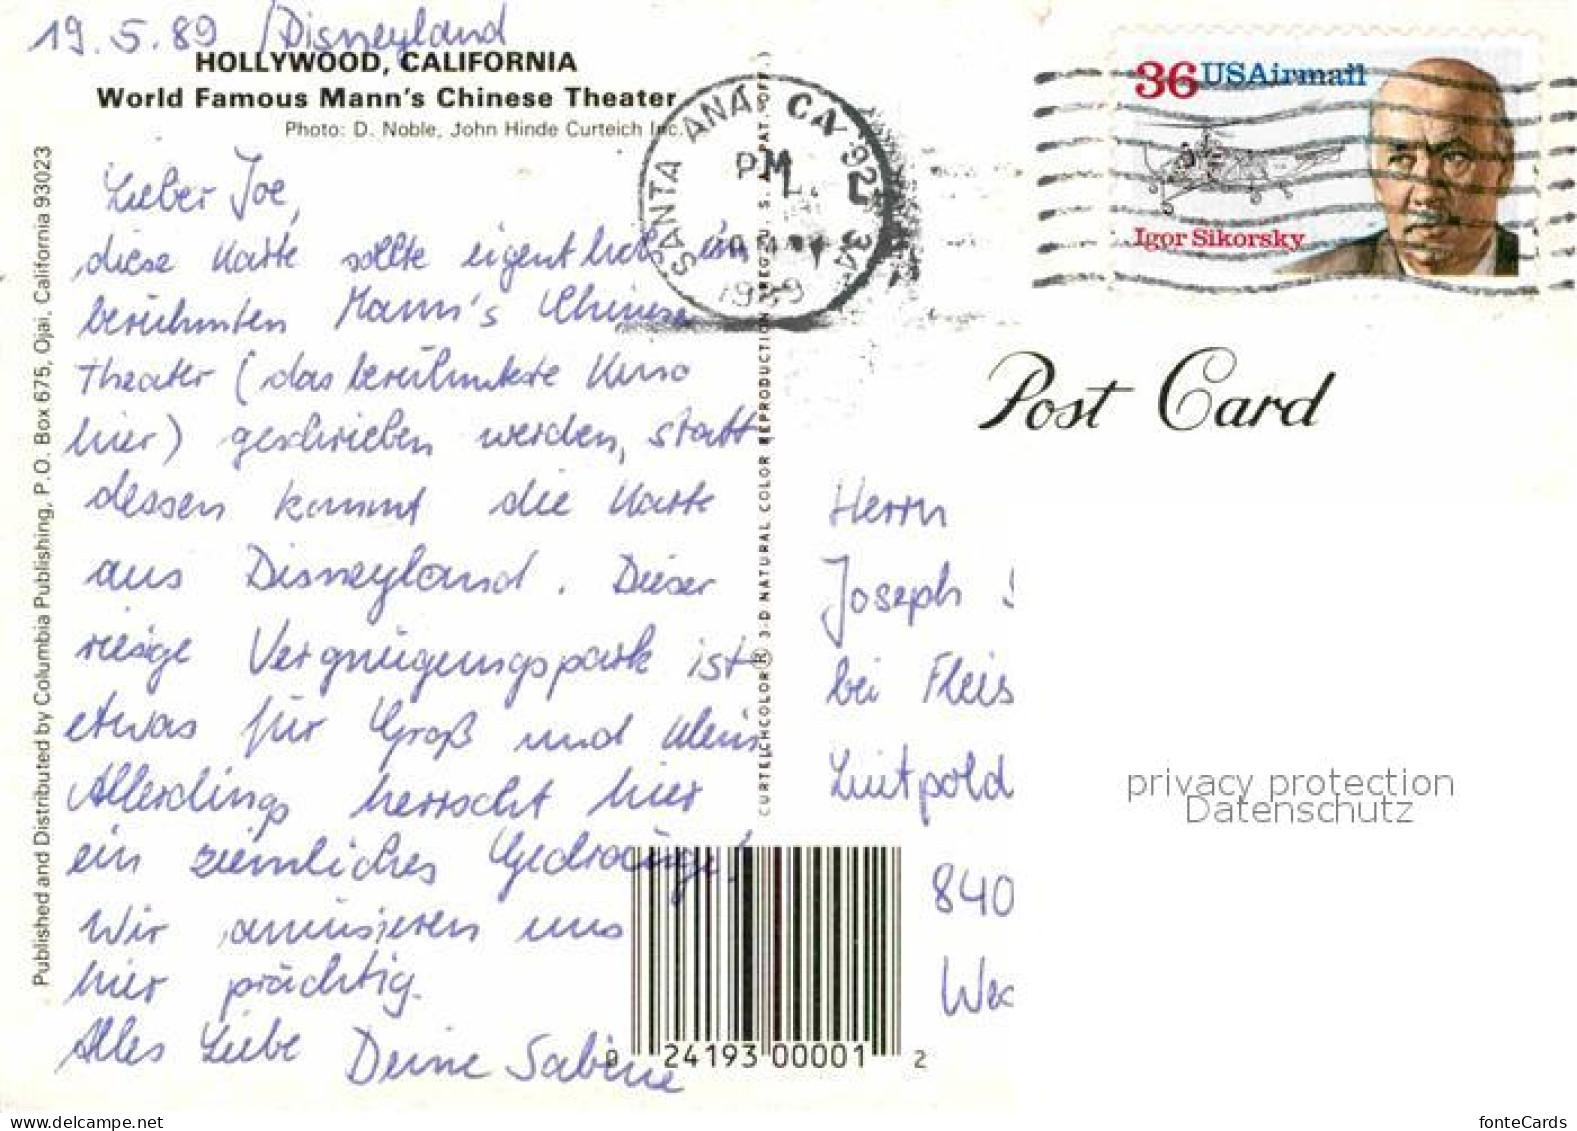 19.5.89 /Disneyland
HOLLYWOOD, CALIFORNIA
World Famous Mann's Chinese Theater
Photo: D. Noble, John Hinde Curteich Inc.
Lieber Joe,
diese Karte sollte eigentlich im
berühmten Mann's Chinese
Theater (das berühmteste Kino
hier) geschrieben werden, statt
dessen kommt die Karte
aus Disneyland. Dieser
riesige Vergnügungspark ist
etwas für Groß und Klein.
Allerdings herrscht hier
ein ziemliches Gedränge!
Wir amüsieren uns
hier prächtig.
Alles Liebe Deine Sabine
Published and Distributed by Columbia Publishing, P.O. Box 675, Ojai, California 93023
CURTEICHCOLOR® 3-D NATURAL COLOR REPRODUCTION (REG. U. S. A. PAT. OFF.)
SANTA ANA CA 92
PM
1989
36 USAirmail
Igor Sikorsky
Post Card
Herrn
Joseph
bei Fleis
Luitpold
840
We
privacy protection
Datenschutz
0 24193 00001 2
fonteCards